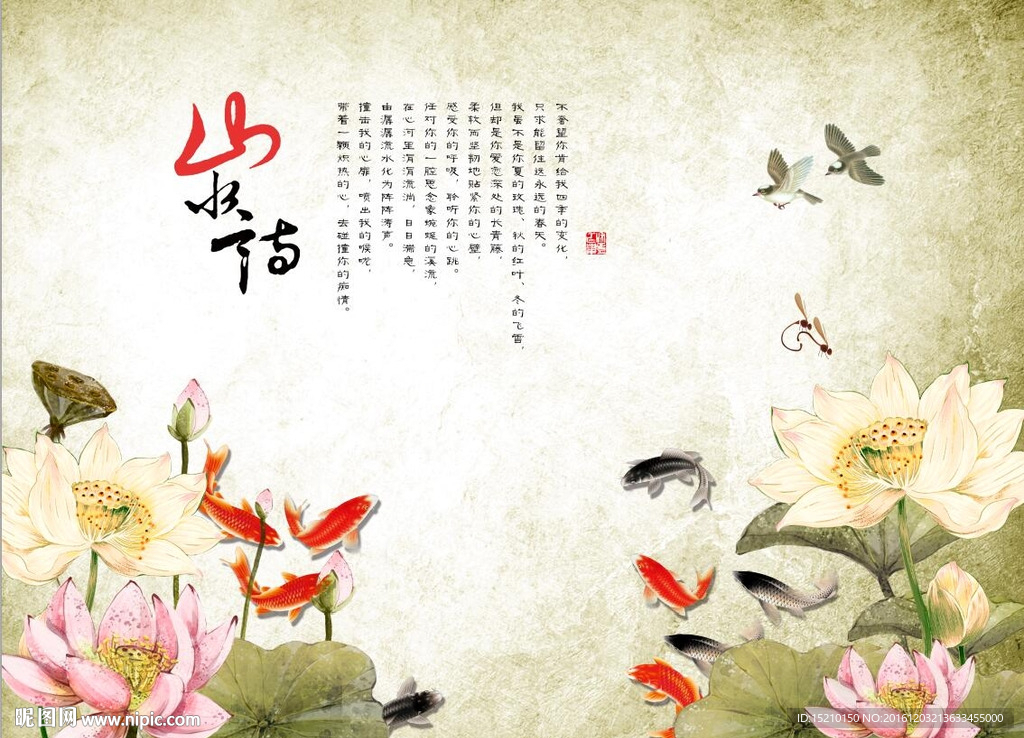 山
水
诗
不奢望你肯给我四季的变化,
只求能留住这永远的春天。
我虽不是你夏的玫瑰、秋的红叶、冬的飞雪,
但却是你爱恋深处的长青藤,
柔软而坚韧地贴紧你的心壁,
感受你的呼吸,聆听你的心跳。
任对你的一腔思念象蜿蜒的溪流,
在心河里涓涓流淌,日日湍急,
由潺潺流水化为阵阵涛声。
撞击我的心扉,喷出我的喉咙,
带着一颗炽热的心,去碰撞你的痴情。
昵图网 www.nipic.com
ID:15210150 NO:20161203213633455000